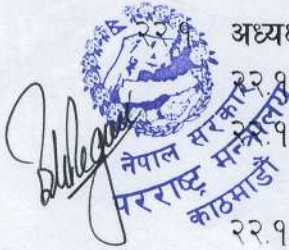 २२.१
अध्यक्ष
२२.१
२२.१
नेपाल सरकार
परराष्ट्र मन्त्रालय
काठमाडौं
२२.१